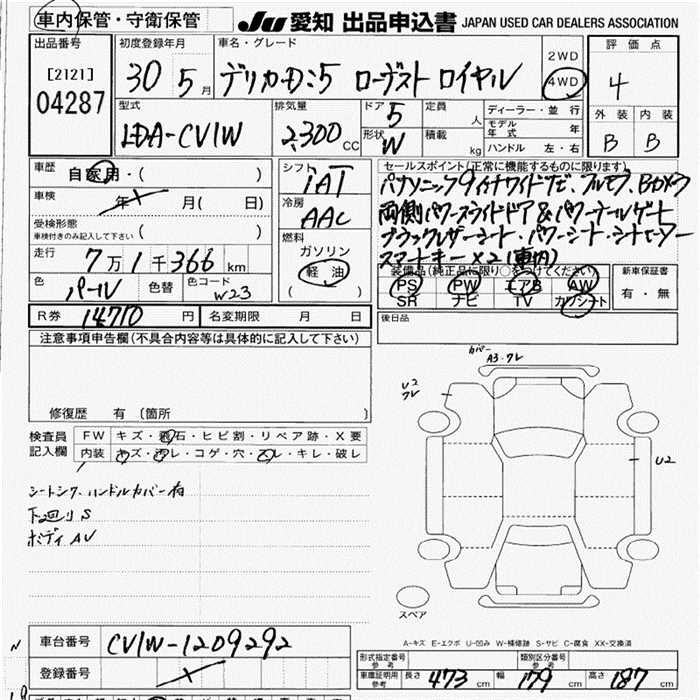 車内保管・守衛保管
JU 愛知 出品申込書 JAPAN USED CAR DEALERS ASSOCIATION
出品番号
[2121]
04287
初度登録年月
30 5月
車名・グレード
デリカD:5 ローデスト ロイヤル
2WD
4WD
評価点
4
外装 内装
B B
型式
LDA-CV1W
排気量
2300 CC
ドア 5
形状 W
定員 人
積載 kg
ディーラー・並行
モデル年式 年
ハンドル 左・右
車歴 自家用・( )
車検 年 月( 日)
受検形態
車検付きのみ記入して下さい ( )
走行 7万1千366 km
色 パール 色替 色コード W23
シフト
IAT
冷房
AAC
燃料
ガソリン
軽油
( )
セールスポイント(正常に機能するものに限ります)
パナソニック9インチワイドナビ、フルセグ、Bカメラ
両側パワースライドドア&パワーテールゲート
ブラックレザーシート・パワーシート・シートヒーター
スマートキー×2(車内)
装備品(純正品に限り○をつけてください)
PS PW エアB AW
SR ナビ TV カワシート
新車保証書
有・無
R券 14710 円 名変期限 月 日
後日品
注意事項申告欄(不具合内容等は具体的に記入して下さい)
修復歴 有 (箇所 )
検査員記入欄
FW キズ・飛石・ヒビ割・リペア跡・X要
内装 キズ・汚レ・コゲ・穴・スレ・キレ・破レ
シートシワ、ハンドルカバー有
下廻りS
ボディAU
カバー
A3・ワレ
U2
ワレ
U2
スペア
A-キズ E-エクボ U-凹み W-補修跡 S-サビ C-腐食 XX-交換済
車台番号 CV1W-1209292
登録番号
形式指定番号 参考
類別区分番号 参考
車庫証明用 参考 長さ 473 cm 幅 179 cm 高さ 187 cm